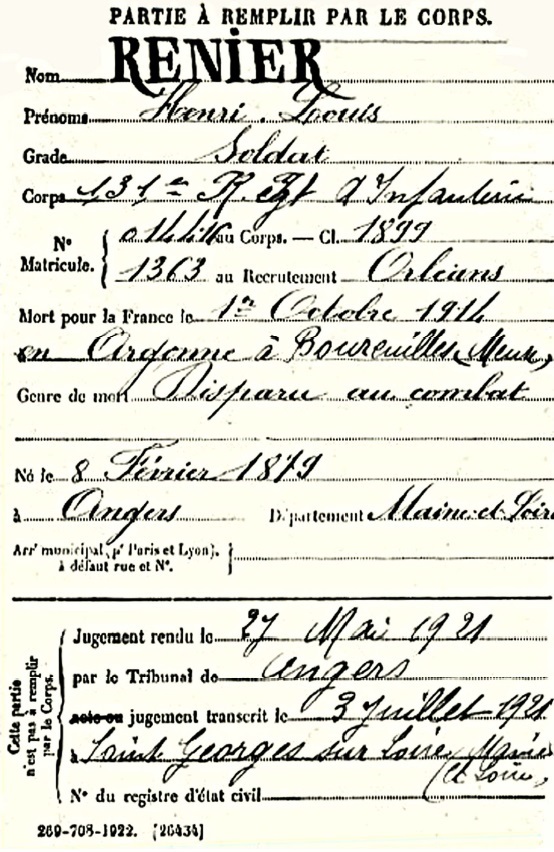 PARTIE À REMPLIR PAR LE CORPS.
Nom RENIER
Prénoms Henri Louis
Grade Soldat
Corps 131e R. Igt d'Infanterie
N° Matricule. { au Corps. — Cl. 1899
1363 au Recrutement Orléans
Mort pour la France le 1er Octobre 1914
en Argonne à Boureuilles (Meuse)
Genre de mort Disparu au combat
Né le 8 Février 1879
à Angers Département Maine-et-Loire
Arrt municipal (pr Paris et Lyon), }
à défaut rue et N°.
Cette partie n'est pas à remplir par le Corps.
Jugement rendu le 27 Mai 1921
par le Tribunal de Angers
acte ou jugement transcrit le 3 Juillet 1921
à Saint Georges sur Loire, Maine
(et Loire)
N° du registre d'état civil
269-708-1922. [26434]